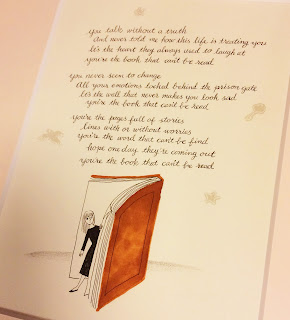 you talk without a truth
and never told me how this life is treating you
it's the heart they always used to laugh at
you're the book that can't be read
you never seem to change
All your emotions locked behind the prison gate
it's the will that never makes you look sad
you're the book that can't be read
you're the pages full of stories
lines with or without worries
you're the word that can't be find
hope one day they're coming out
you're the book that can't be read